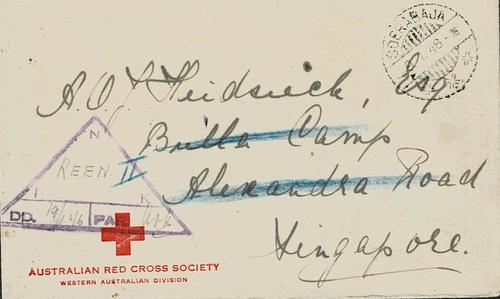 SOEKARAJA
.46
A O J Heidsieck, Esq
Bulla Camp
Alexandra Road
Singapore.
N
REEN II
I K
DD. 19/1 46 PAR
AUSTRALIAN RED CROSS SOCIETY
WESTERN AUSTRALIAN DIVISION